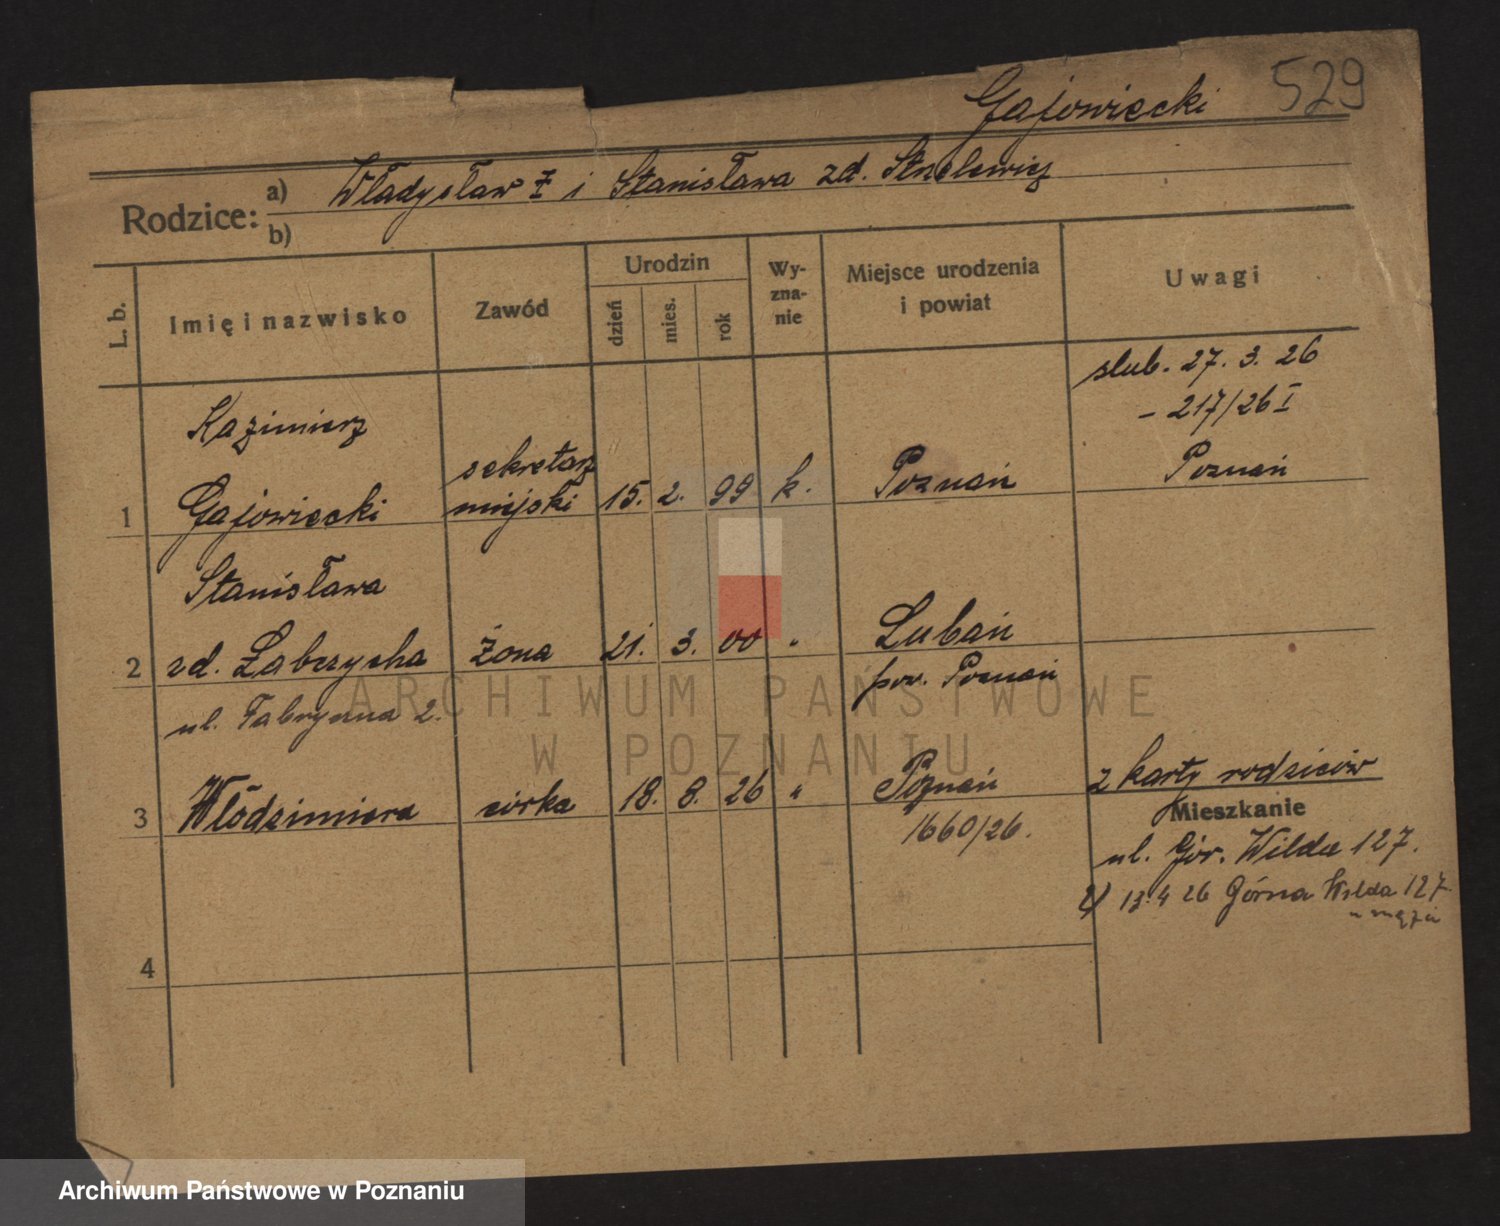 Gajowiecki 529
Rodzice: a) Władysław ‡ i Stanisława zd. Strelewicz
b)
L. b.
Imię i nazwisko
Zawód
Urodzin
dzień
mies.
rok
Wy-
zna-
nie
Miejsce urodzenia
i powiat
Uwagi
slub. 27. 3. 26
- 217/26 I
Poznań
Kazimierz
1 Gajowiecki sekretarz
miejski 15. 2. 99 k. Poznań
Stanisława
2 zd. Łabczycha żona 21. 3. 00 " Lubań
pow. Poznań
ul. Fabryczna 2.
3 Włodzimiera córka 18. 8. 26 " Poznań
1660/26.
z karty rodziców
Mieszkanie
ul. Gór. Wilda 127.
2) 13.4 26 Górna Wilda 127.
u męża
4
ARCHIWUM PAŃSTWOWE
W POZNANIU
Archiwum Państwowe w Poznaniu